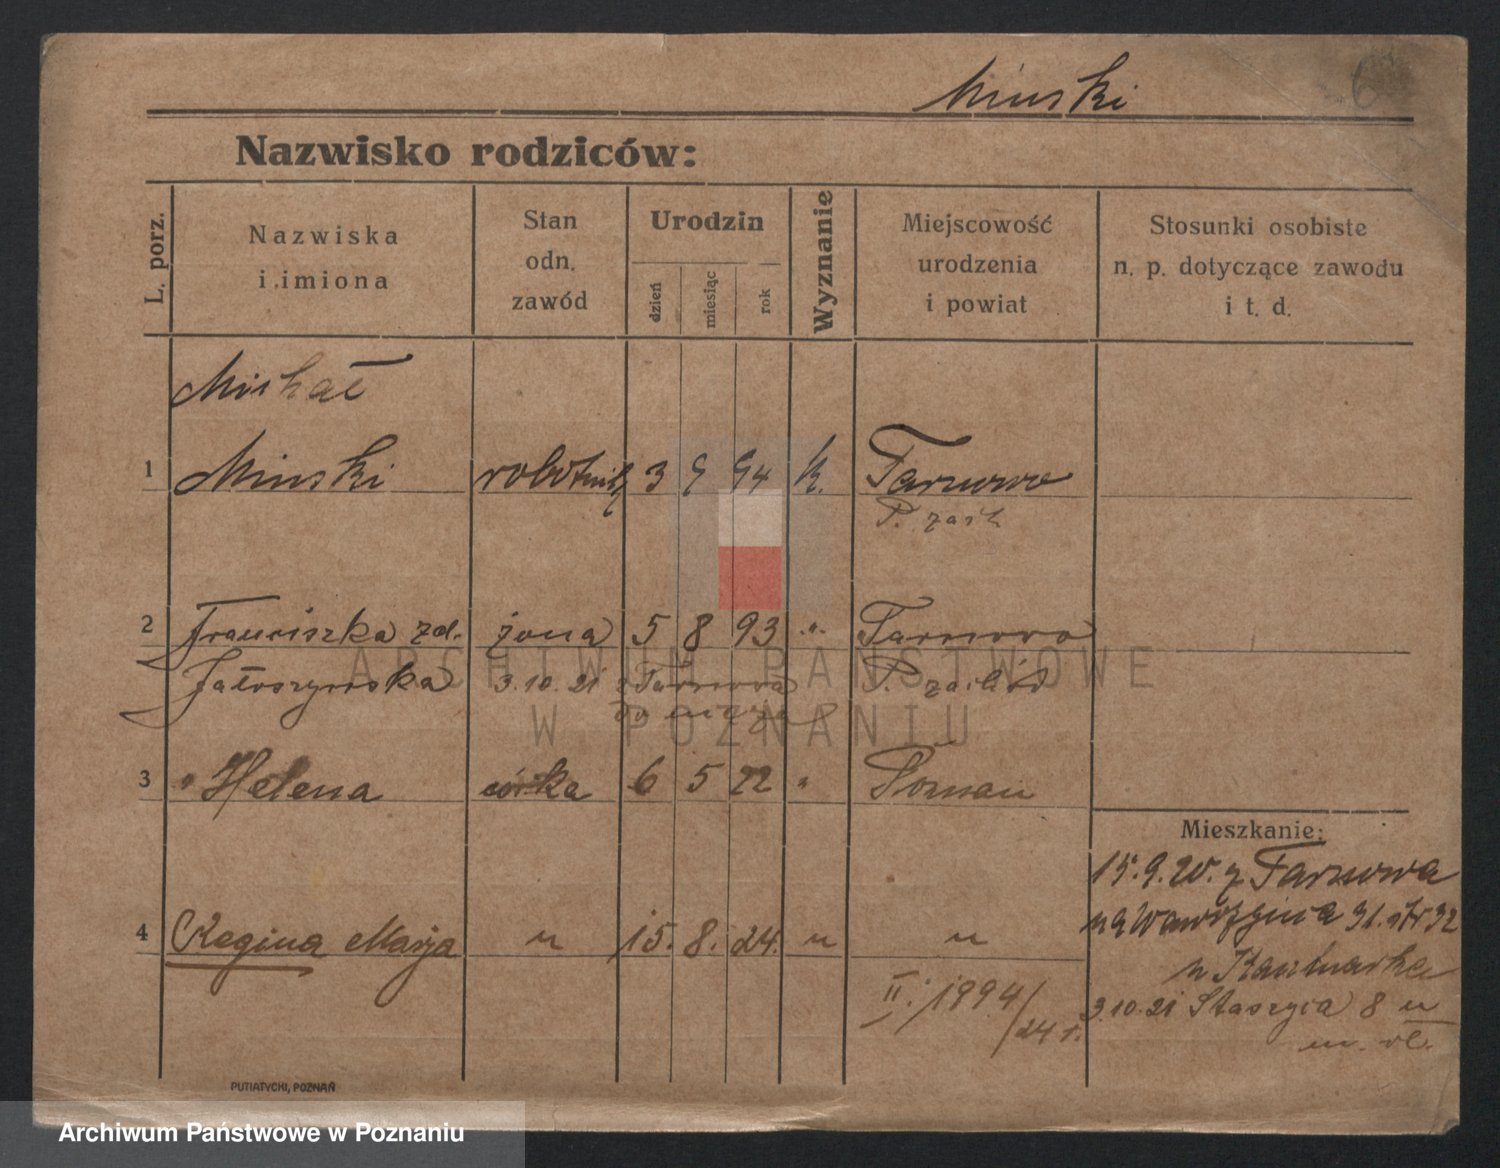 Minski
6
Nazwisko rodziców:
L. porz.
Nazwiska
i imiona
Stan
odn.
zawód
Urodzin
dzień
miesiąc
rok
Wyznanie
Miejscowość
urodzenia
i powiat
Stosunki osobiste
n. p. dotyczące zawodu
i t. d.
Michał
1 Minski robotnik 3 9 94 k. Tarnowo
P. zach
2 Franciszka zd. żona 5 8 93 " Tarnowo
3.10.21 z Tarnowa P. zachód
do męża
3 " Helena córka 6 5 22 " Poznań
Mieszkanie:
15.9.20. z Tarnowa
4 Regina Marja " 15. 8. 24. " "
II. /1994/
24 r.
3.10.21 Staszyca 8 u
PUTIATYCKI, POZNAŃ
ARCHIWUM PAŃSTWOWE
W POZNANIU
Archiwum Państwowe w Poznaniu